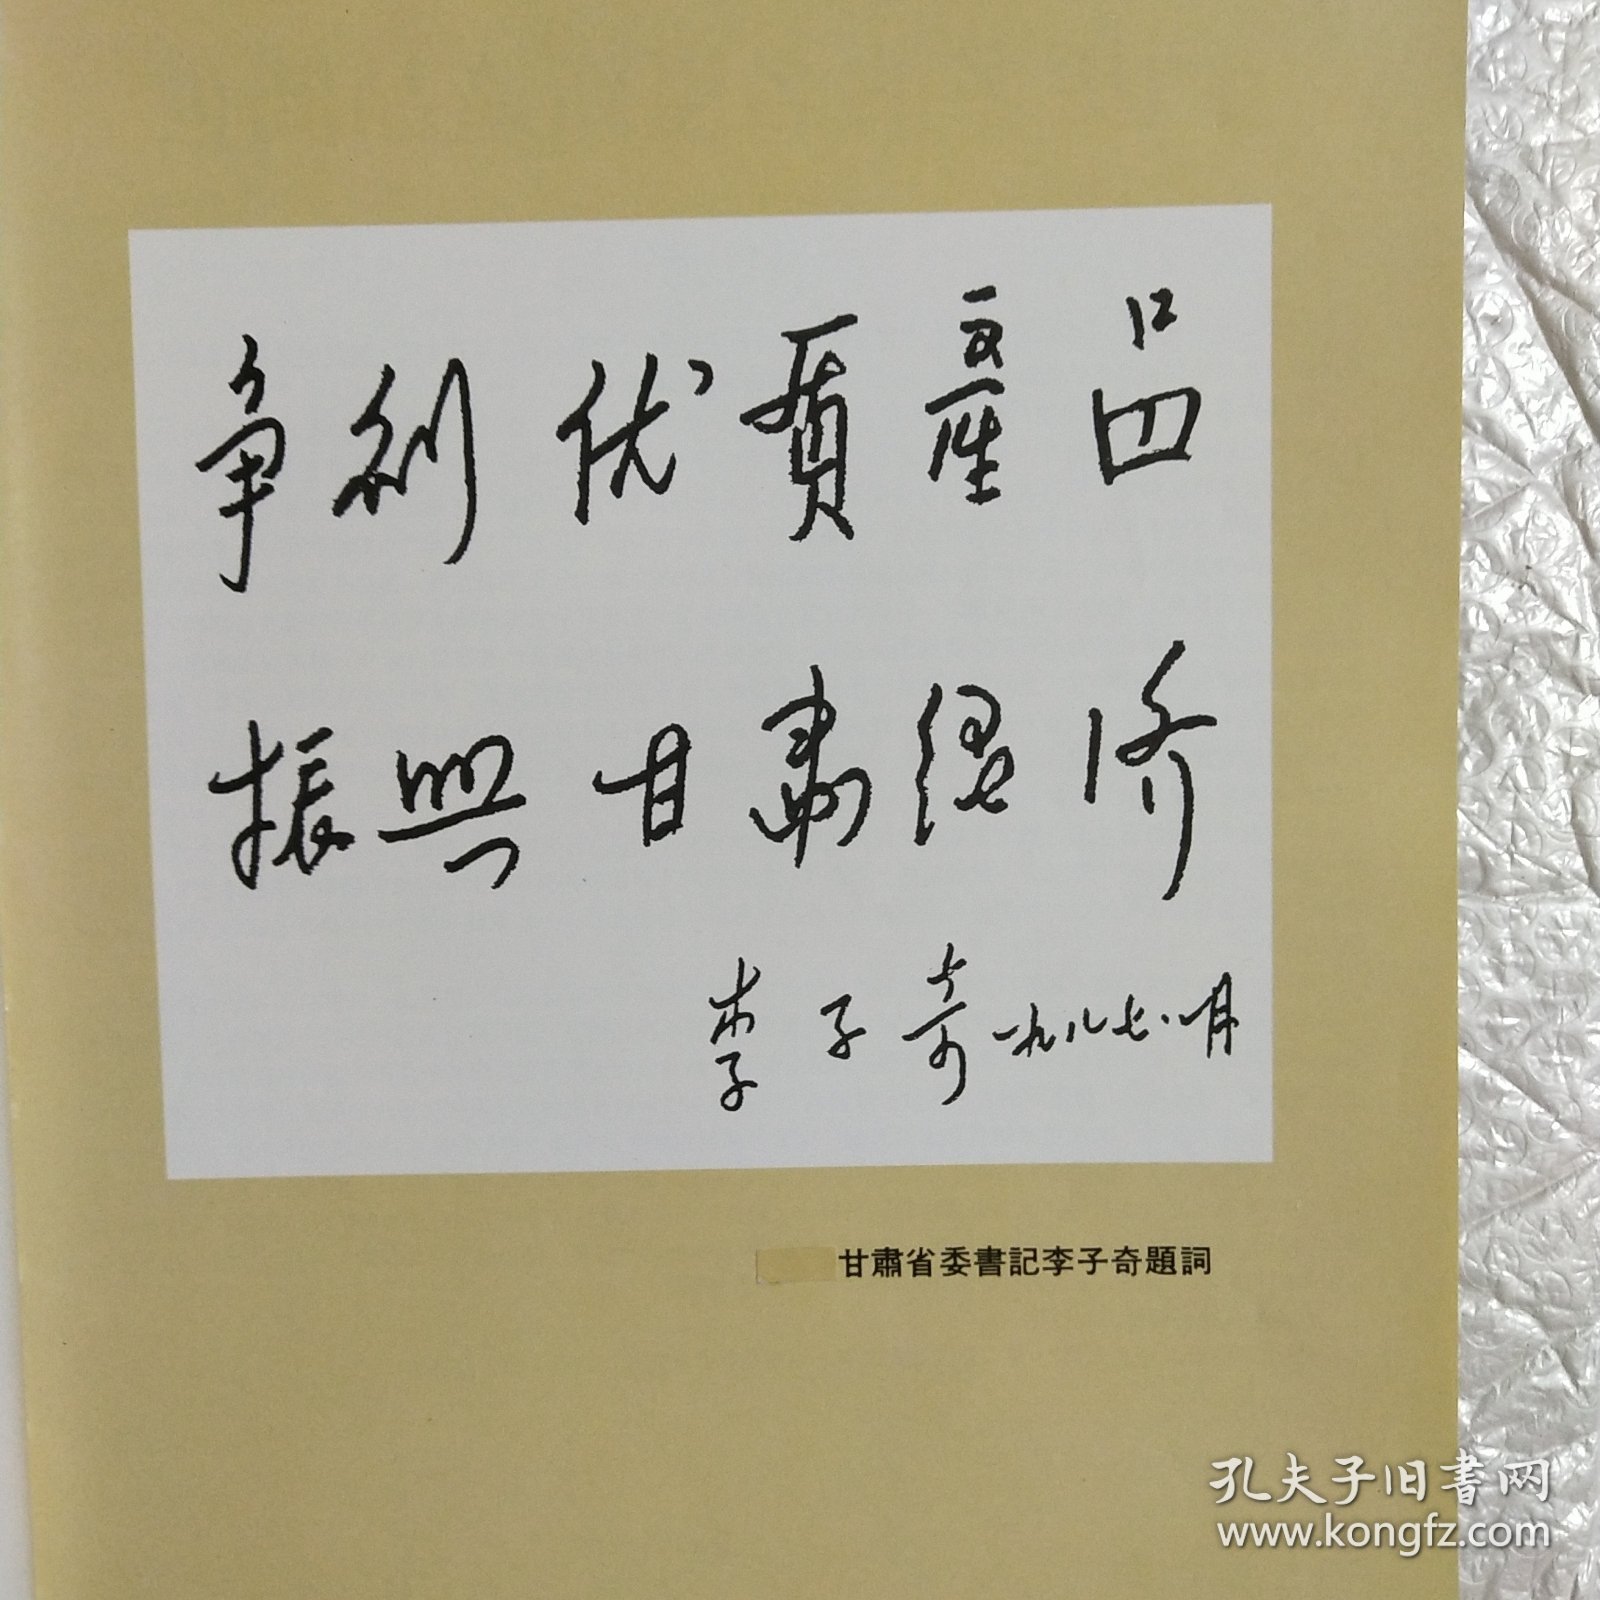 争创优質產品
振興甘肃經济
李子奇一九八七、一月
甘肅省委書記李子奇題詞
孔夫子旧書网
www.kongfz.com